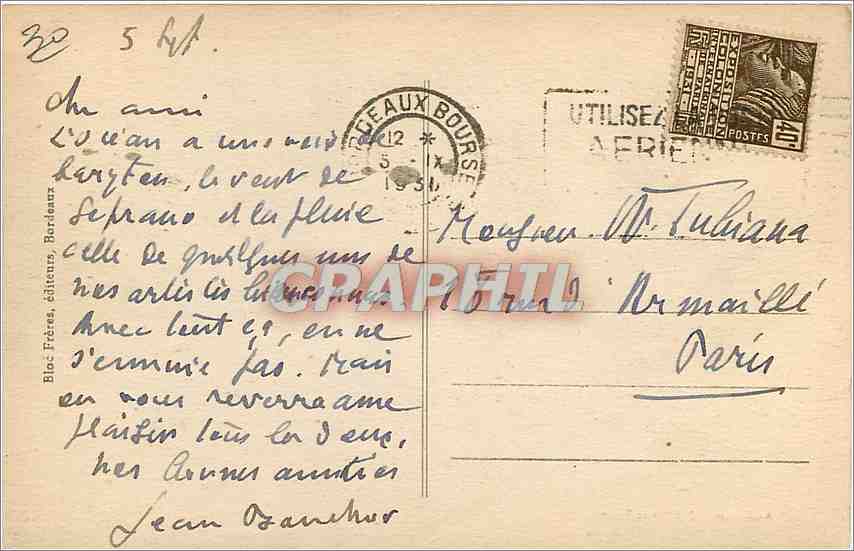 30
5 Sept.
Cher ami
L'Océan a une voix de
baryton, le vent de
Soprano et la pluie
celle de quelques uns de
nos artistes bien connus.
Avec tout ça, on ne
s'ennuie pas. Mais
on vous reverra avec
plaisir tous les deux,
nos bonnes amitiés
Jean
Bloc Frères, éditeurs, Bordeaux
BORDEAUX BOURSE
12 *
5 - IX
1931
UTILISEZ
AERIEN
EXPOSITION
COLONIALE
INTERNATIONALE
PARIS 1931
POSTES
40c
Monsieur W. Tubiana
rue d'Armaillé
Paris
CPAPHIL